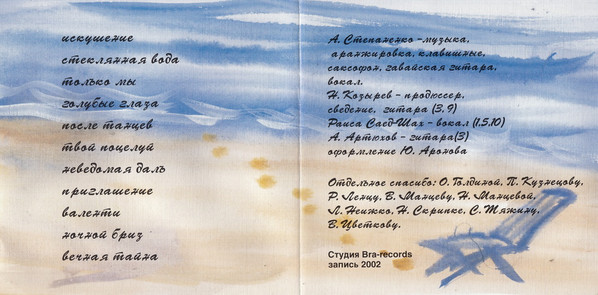 искушение
стеклянная вода
только мы
голубые глаза
после танцев
твой поцелуй
неведомая даль
приглашение
валенти
ночной бриз
вечная тайна
А. Степаненко - музыка,
аранжировка, клавишные,
саксофон, гавайская гитара,
вокал.
Н. Козырев - продюссер,
сведение, гитара (3, 9)
Раиса Саед-Шах - вокал (1,5,10)
А. Артюхов - гитара(3)
оформление Ю. Аронова
Отдельное спасибо: О. Голдиной, П. Кузнецову,
Р. Ленцу, В. Манцеву, Н. Манцевой,
Л. Неижко, Н. Скрипке, С. Тяжину,
В. Цветкову.
Студия Bra-records
запись 2002